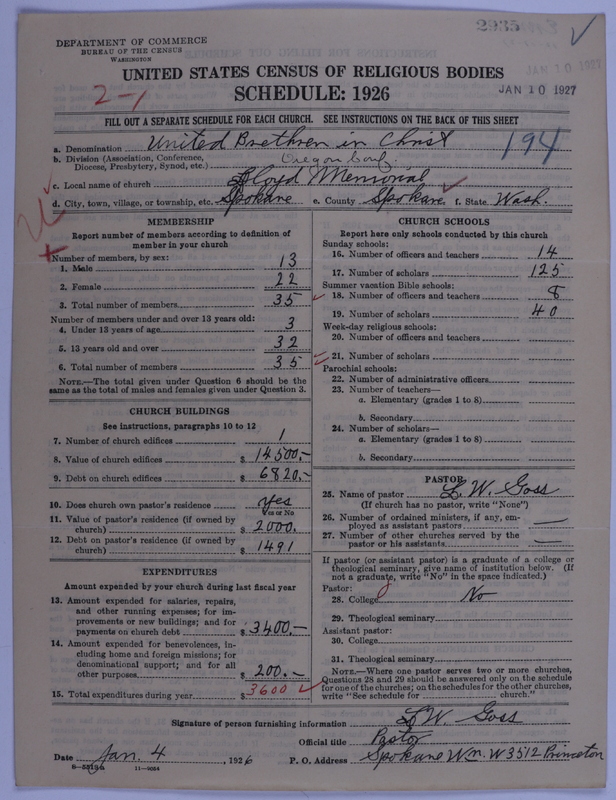 2935
DEPARTMENT OF COMMERCE
BUREAU OF THE CENSUS
WASHINGTON
UNITED STATES CENSUS OF RELIGIOUS BODIES
SCHEDULE: 1926
JAN 10 1927
JAN 10 1927
2-1
FILL OUT A SEPARATE SCHEDULE FOR EACH CHURCH. SEE INSTRUCTIONS ON THE BACK OF THIS SHEET
a. Denomination United Brethren in Christ 194
b. Division (Association, Conference, Diocese, Presbytery, Synod, etc.) Oregon Conf.
c. Local name of church Lloyd Memorial
d. City, town, village, or township, etc. Spokane e. County Spokane f. State Wash.
MEMBERSHIP
Report number of members according to definition of
member in your church
Number of members, by sex:
1. Male 13
2. Female 22
3. Total number of members 35
Number of members under and over 13 years old:
4. Under 13 years of age 3
5. 13 years old and over 32
6. Total number of members 35
NOTE.—The total given under Question 6 should be the
same as the total of males and females given under Question 3.
CHURCH BUILDINGS
See instructions, paragraphs 10 to 12
7. Number of church edifices 1
8. Value of church edifices $ 14500.-
9. Debt on church edifices $ 6820.-
10. Does church own pastor's residence yes
Yes or No
11. Value of pastor's residence (if owned by
church) $ 2000.
12. Debt on pastor's residence (if owned by
church) $ 1491
EXPENDITURES
Amount expended by your church during last fiscal year
13. Amount expended for salaries, repairs,
and other running expenses; for im-
provements or new buildings; and for
payments on church debt $ 3400.-
14. Amount expended for benevolences, in-
cluding home and foreign missions; for
denominational support; and for all
other purposes $ 200.-
15. Total expenditures during year $ 3600
CHURCH SCHOOLS
Report here only schools conducted by this church
Sunday schools:
16. Number of officers and teachers 14
17. Number of scholars 125
Summer vacation Bible schools:
18. Number of officers and teachers 8
19. Number of scholars 40
Week-day religious schools:
20. Number of officers and teachers
21. Number of scholars
Parochial schools:
22. Number of administrative officers
23. Number of teachers—
a. Elementary (grades 1 to 8)
b. Secondary
24. Number of scholars—
a. Elementary (grades 1 to 8)
b. Secondary
PASTOR
25. Name of pastor L. W. Goss
(If church has no pastor, write "None")
26. Number of ordained ministers, if any, em-
ployed as assistant pastors —
27. Number of other churches served by the
pastor or his assistants —
If pastor (or assistant pastor) is a graduate of a college or
theological seminary, give name of institution below. (If
not a graduate, write "No" in the space indicated.)
Pastor:
28. College No
29. Theological seminary
Assistant pastor:
30. College
31. Theological seminary
NOTE.—Where one pastor serves two or more churches,
Questions 28 and 29 should be answered only on the schedule
for one of the churches; on the schedules for the other churches,
write "See schedule for church."
Signature of person furnishing information L W. Goss
Official title Pastor
Date Jan. 4, 1926 P. O. Address Spokane Wn. W 3512 Princeton
8-5519a 11-9024